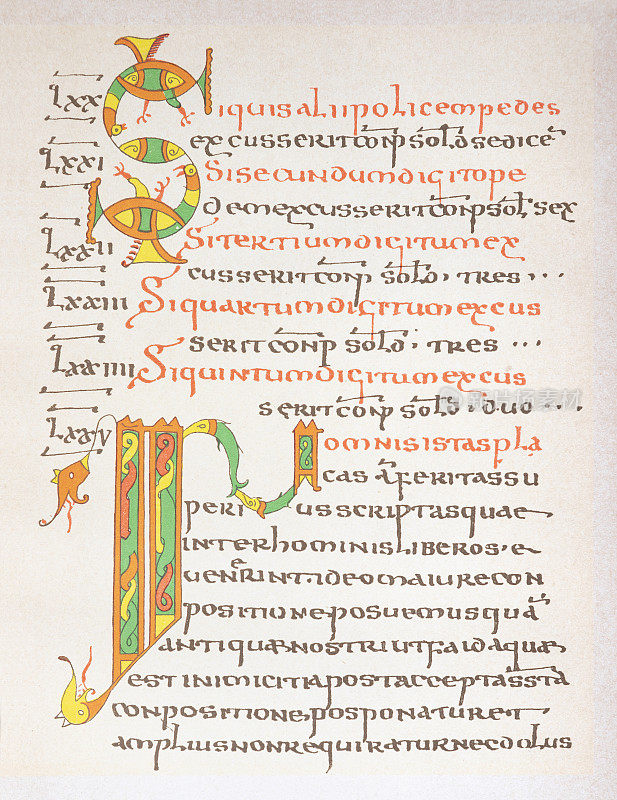 Lxx Siquisaliipolicempedes
excusserit conp sold sedice
Lxxi Sisecundumdigitope
demexcusserit conp sol sex
Lxxii Sitertiumdigitumex
cusserit conp sold · tres ···
Lxxiii Siquartumdigitumexcus
serit conp sold ; tres ···
Lxxiiii Siquintumdigitumexcus
serit conp sold ; duo ····
Lxxv In omnisistaspla
cas a feritassu
periusscriptasquae
interhominisliberos · e
uenerintideomaiurecon
positione · posuemusqua
antiquaenostriutfaidaquae
est inimicitia post accepta ssta
conpositione, posponaturet
ampliusnonrequiraturnecdolus